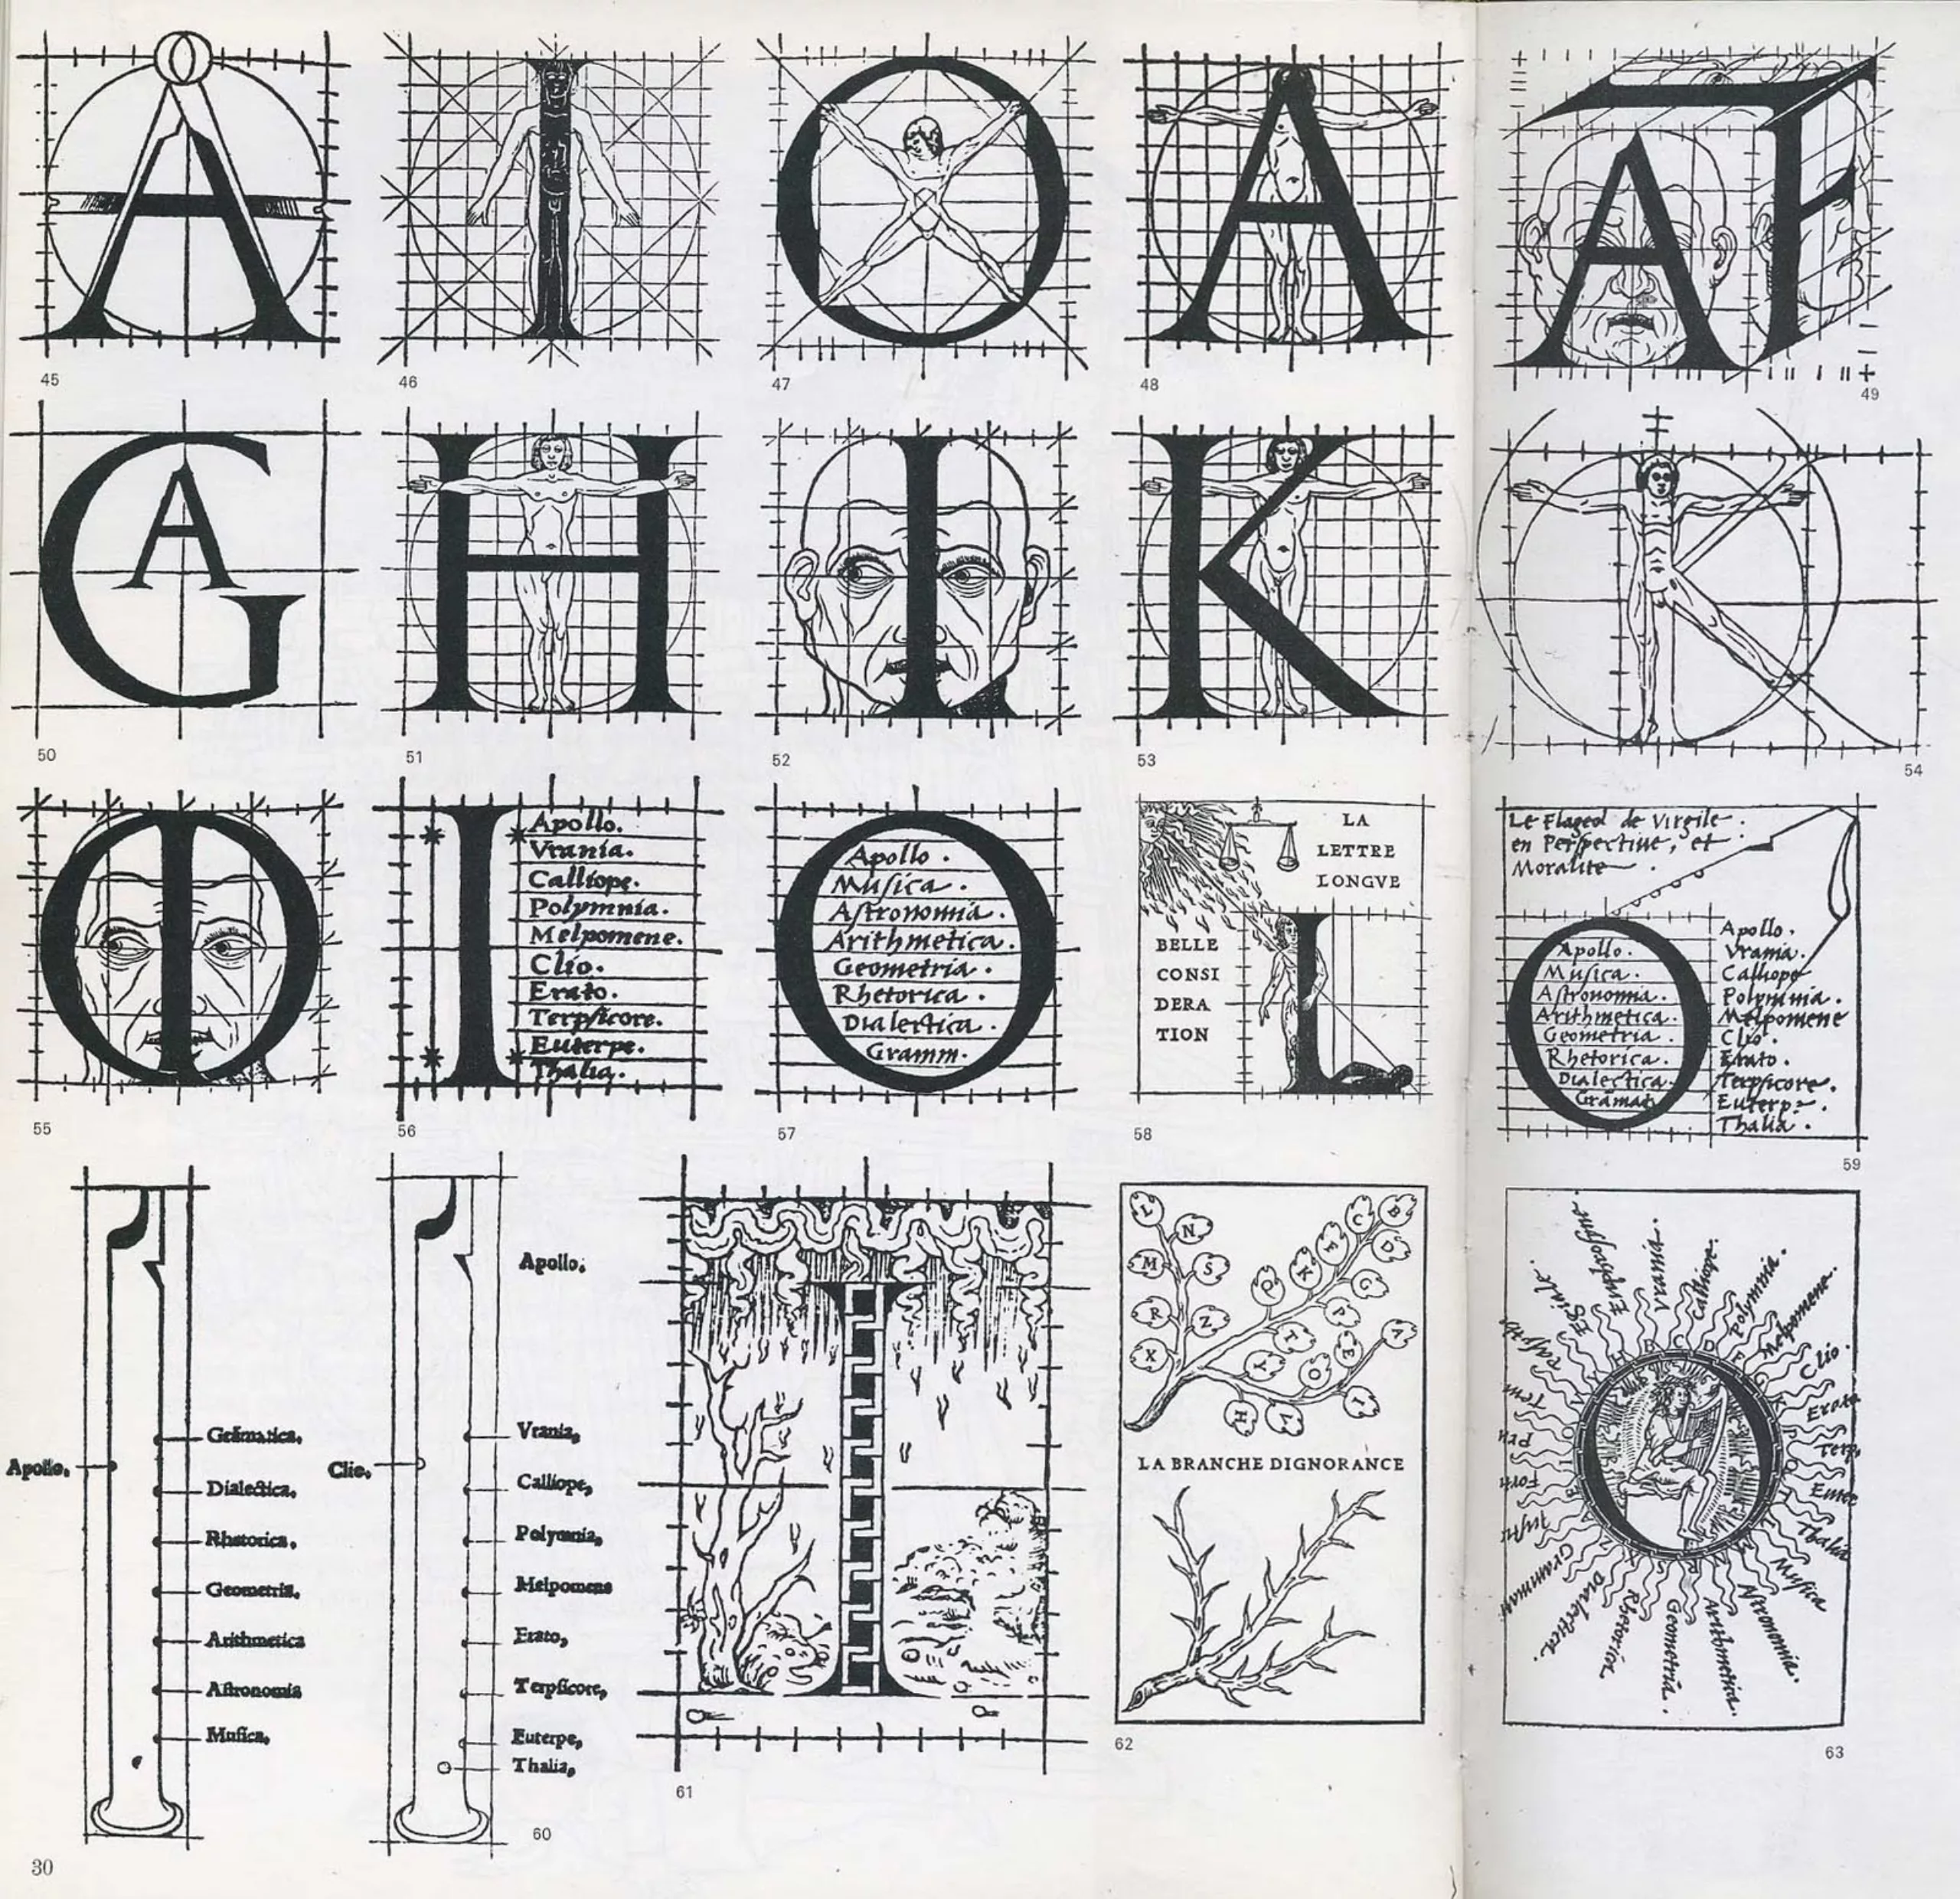 A
45
I
46
O
47
A
48
A F
49
G A
50
H
51
I
52
K
53
K
54
O I
55
I
Apollo.
Vrania.
Calliope.
Polymnia.
Melpomene.
Clio.
Erato.
Terpſicore.
Euterpe.
Thalia.
56
O
Apollo.
Muſica.
Aſtronomia.
Arithmetica.
Geometria.
Rhetorica.
Dialectica.
Gramm.
57
LA
LETTRE
LONGVE
BELLE
CONSI
DERA
TION
L
58
Le Flageol de Virgile
en Perſpectiue, et
Moralite.
O
Apollo.
Muſica.
Aſtronomia.
Arithmetica.
Geometria.
Rhetorica.
Dialectica.
Apollo.
Vrania.
Calliope
Polymnia.
Melpomene
Clio.
Erato.
Terpſicore.
Euterp
Thalia.
59
Apollo.
Dialectica.
Rhetorica.
Geometria.
Arithmetica
Aſtronomia
Muſica.
Clio.
Apollo.
Vrania,
Calliope,
Polymnia,
Melpomene
Erato,
Terpſicore,
Euterpe,
Thalia,
60
I
61
L
N
M
S
R
Z
X
C
B
F
D
K
G
Q
P
T
E
A
Y
O
H
I
LA BRANCHE DIGNORANCE
62
O
Vrania.
Calliope.
Polymnia.
Melpomene.
Clio.
Erato
Terp,
Thalia
Muſica
Aſtronomia.
Arithmetica.
Geometria.
Rhetorica.
Dialectica.
63
30